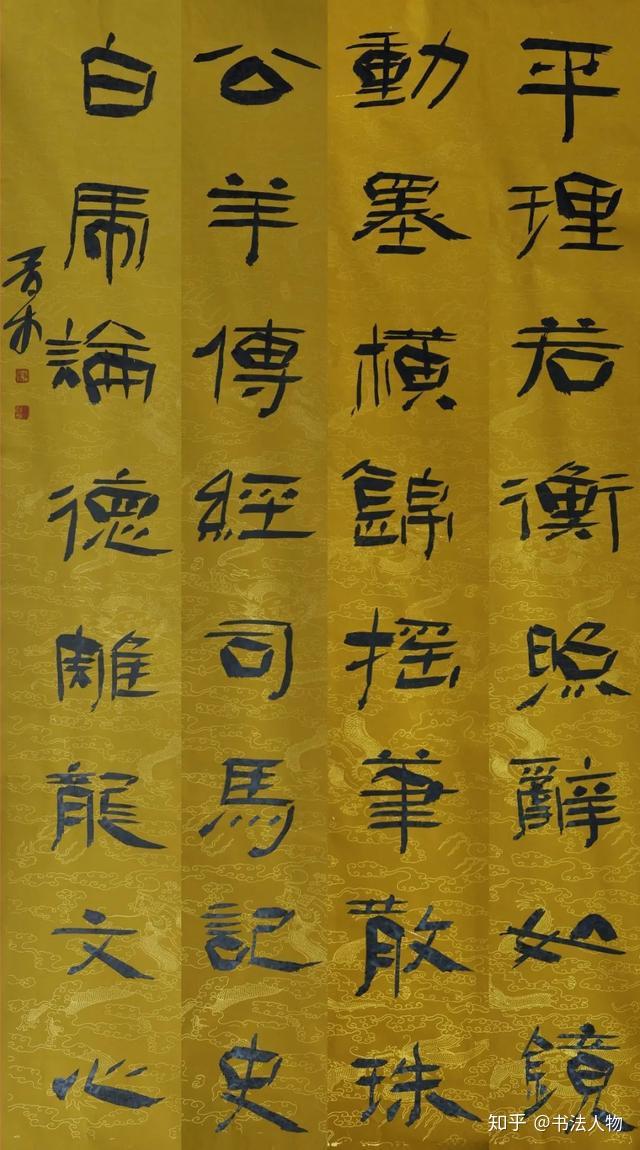 平理若衡照辭如鏡
動墨橫錦搖筆散珠
公羊傳經司馬記史
白虎論德雕龍文心
知乎 @书法人物